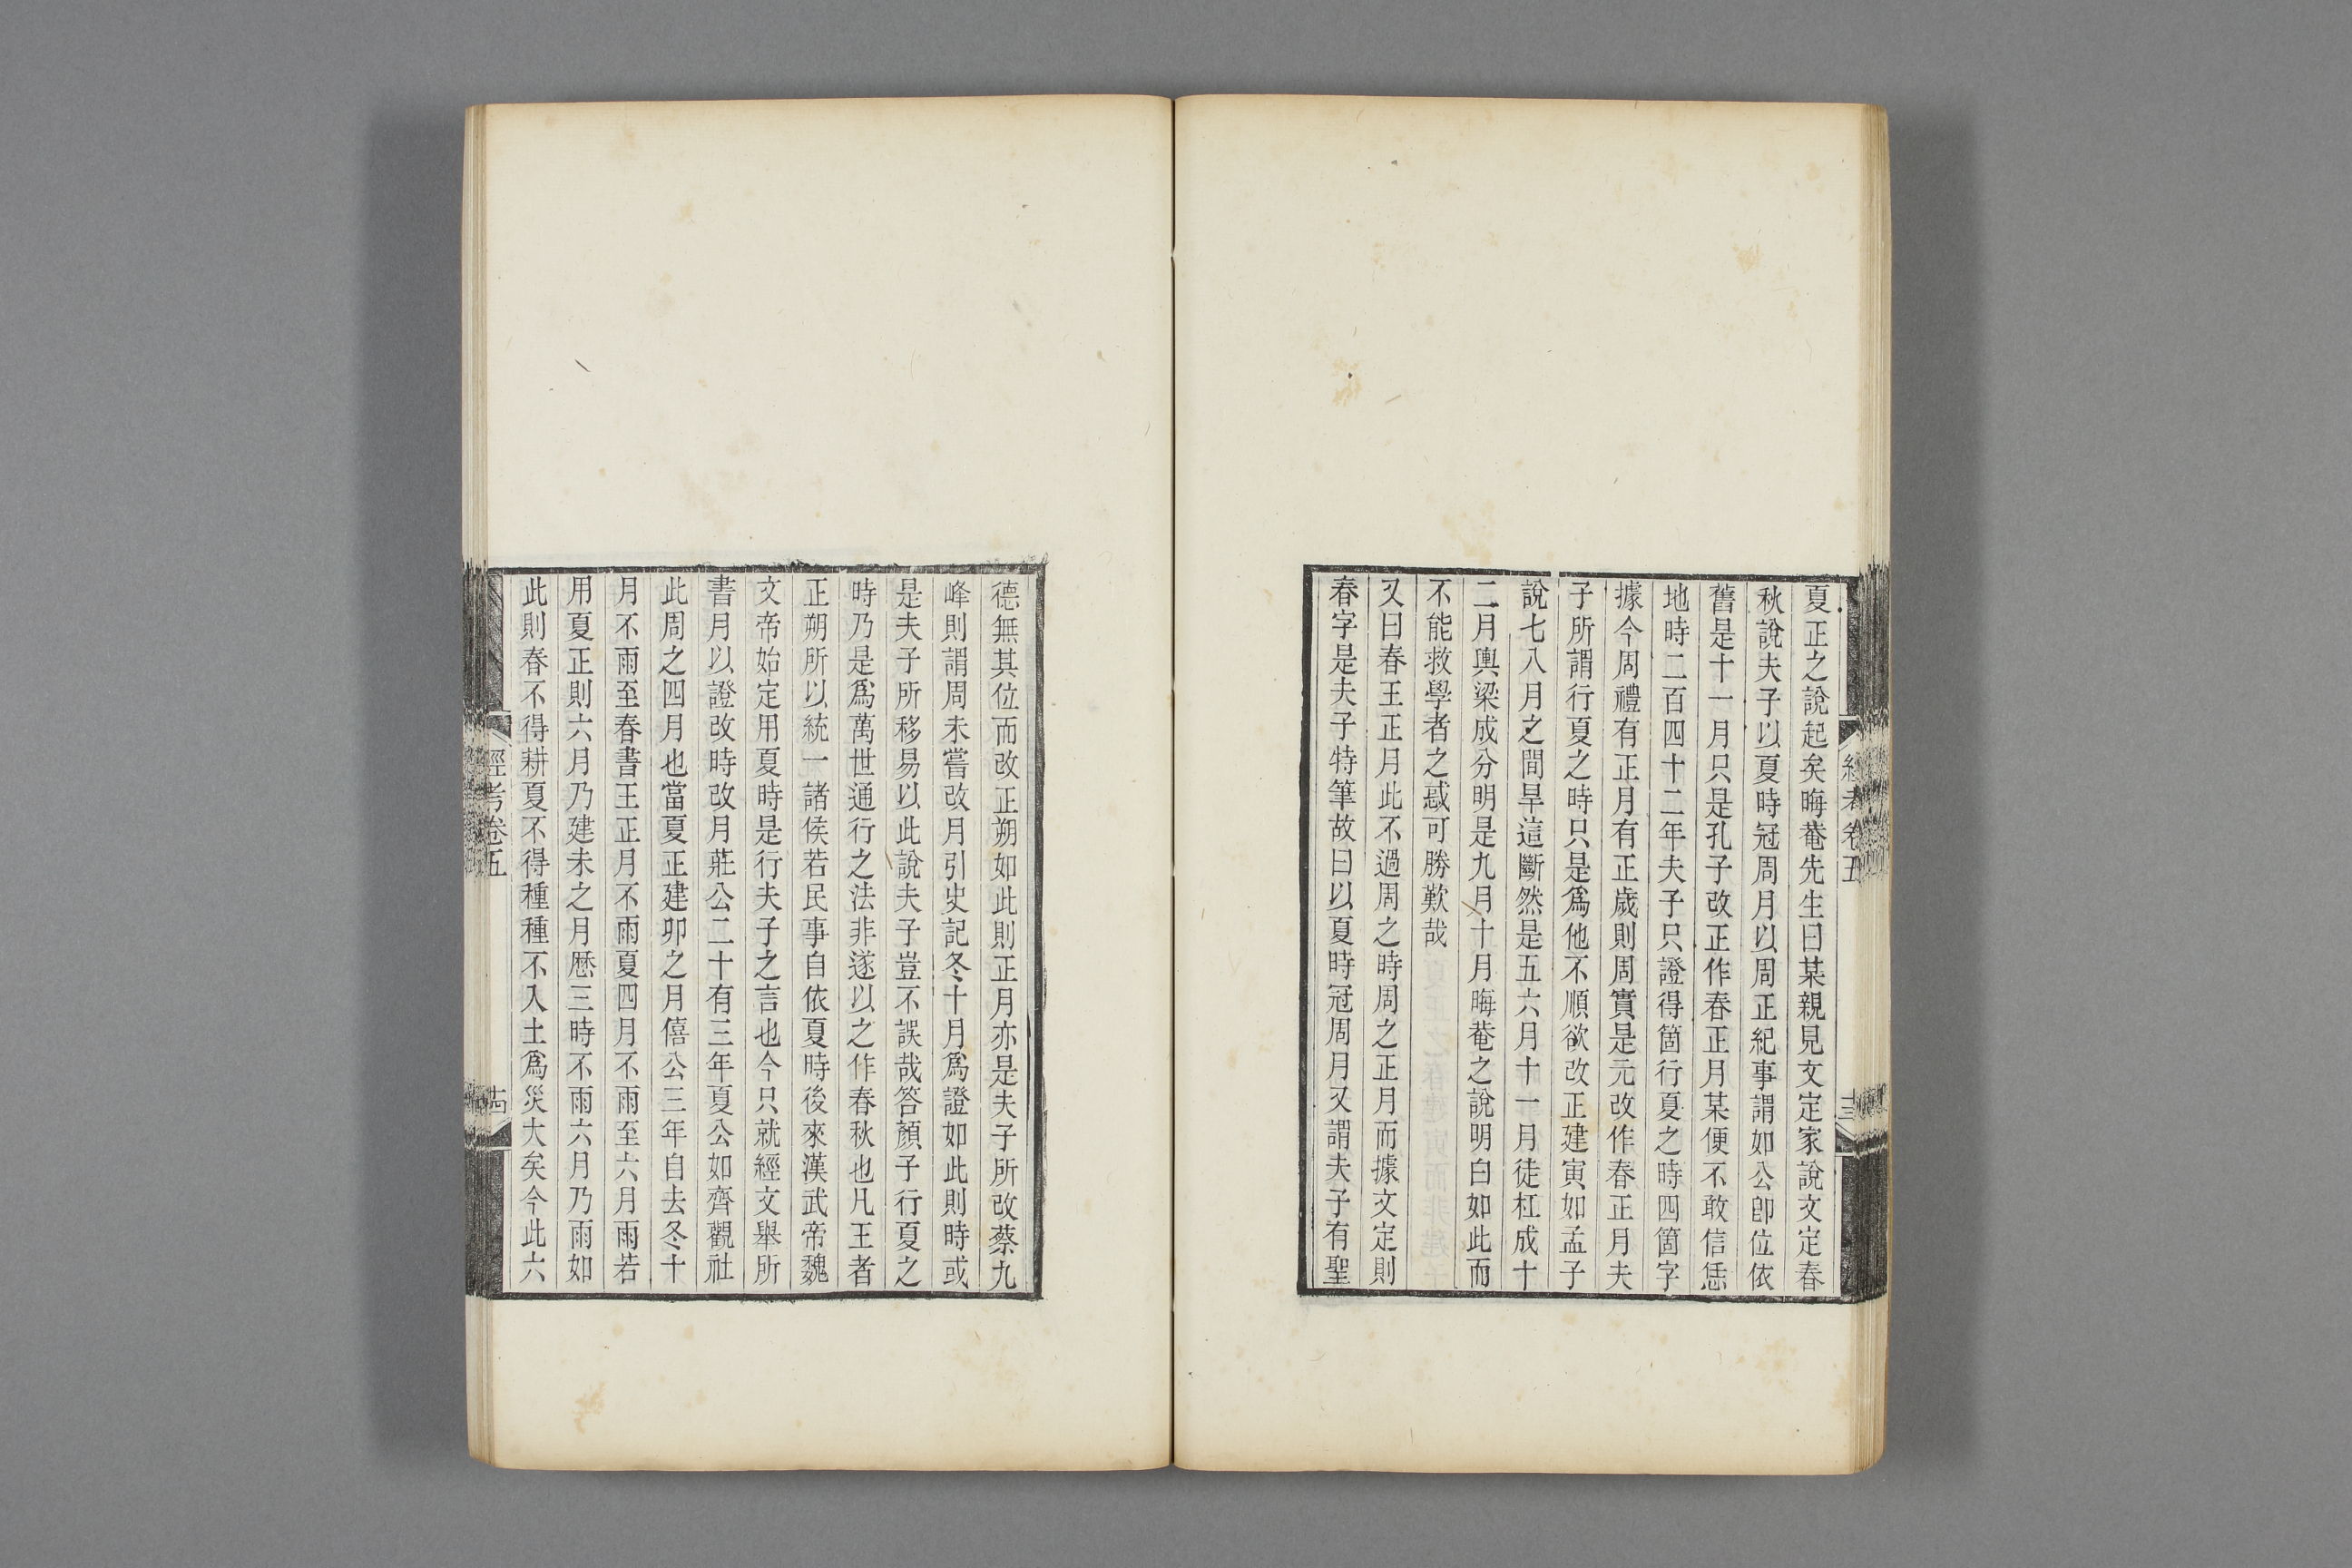 夏正之說起矣晦菴先生曰某親見文定家說文定春
秋說夫子以夏時冠周月以周正紀事謂如公卽位依
舊是十一月只是孔子改正作春正月某便不敢信恁
地時二百四十二年夫子只證得箇行夏之時四箇字
據今周禮有正月有正歲則周實是元改作春正月夫
子所謂行夏之時只是爲他不順欲改正建寅如孟子
說七八月之間旱這斷然是五六月十一月徒杠成十
二月輿梁成分明是九月十月晦菴之說明白如此而
不能救學者之惑可勝歎哉
又曰春王正月此不過周之時周之正月而據文定則
春字是夫子特筆故曰以夏時冠周月又謂夫子有聖
經考卷五
十三
德無其位而改正朔如此則正月亦是夫子所改蔡九
峰則謂周未嘗改月引史記冬十月爲證如此則時或
是夫子所移易以此說夫子豈不誤哉答顏子行夏之
時乃是爲萬世通行之法非遂以之作春秋也凡王者
正朔所以統一諸侯若民事自依夏時後來漢武帝魏
文帝始定用夏時是行夫子之言也今只就經文舉所
書月以證改時改月莊公二十有三年夏公如齊觀社
此周之四月也當夏正建卯之月僖公三年自去冬十
月不雨至春書王正月不雨夏四月不雨至六月雨若
用夏正則六月乃建未之月歷三時不雨六月乃雨如
此則春不得耕夏不得種種不入土爲災大矣今此六
經考卷五